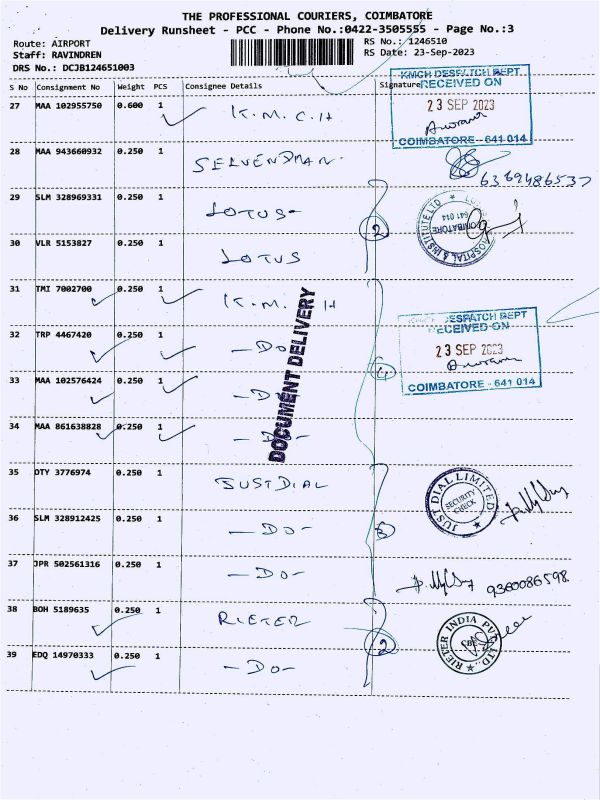 THE PROFESSIONAL COURIERS, COIMBATORE
Delivery Runsheet - PCC - Phone No.:0422-3505555 - Page No.:3
Route: AIRPORT
Staff: RAVINDREN
DRS No.: DCJB124651003
RS No.: 1246510
RS Date: 23-Sep-2023
S No Consignment No Weight PCS Consignee Details Signature
KMCH DESPATCH DEPT
RECEIVED ON
23 SEP 2023
COIMBATORE - 641 014
27 MAA 102955750 0.600 1 K.M.C.H
28 MAA 943660932 0.250 1 SELVENDRAN
6369486537
29 SLM 328969331 0.250 1 LOTUS
2
HOSPITAL & INSTITUTE LTD
COIMBATORE
641 014
30 VLR 5153827 0.250 1 LOTUS
31 TMI 7002700 0.250 1 K.M. H
DOCUMENT DELIVERY
DESPATCH DEPT
RECEIVED ON
23 SEP 2023
COIMBATORE - 641 014
32 TRP 4467420 0.250 1 -DO-
33 MAA 102576424 0.250 1
4
34 MAA 861638828 0.250 1 -DO-
35 OTY 3776974 0.250 1 JUSTDIAL
JUST DIAL LIMITED
SECURITY CHECK
36 SLM 328912425 0.250 1 -DO-
3
37 JPR 502561316 0.250 1 -DO-
9360086598
38 BOH 5189635 0.250 1 RIETER
2
RIETER INDIA PVT. LTD..
CBE
39 EDQ 14970333 0.250 1 -DO-